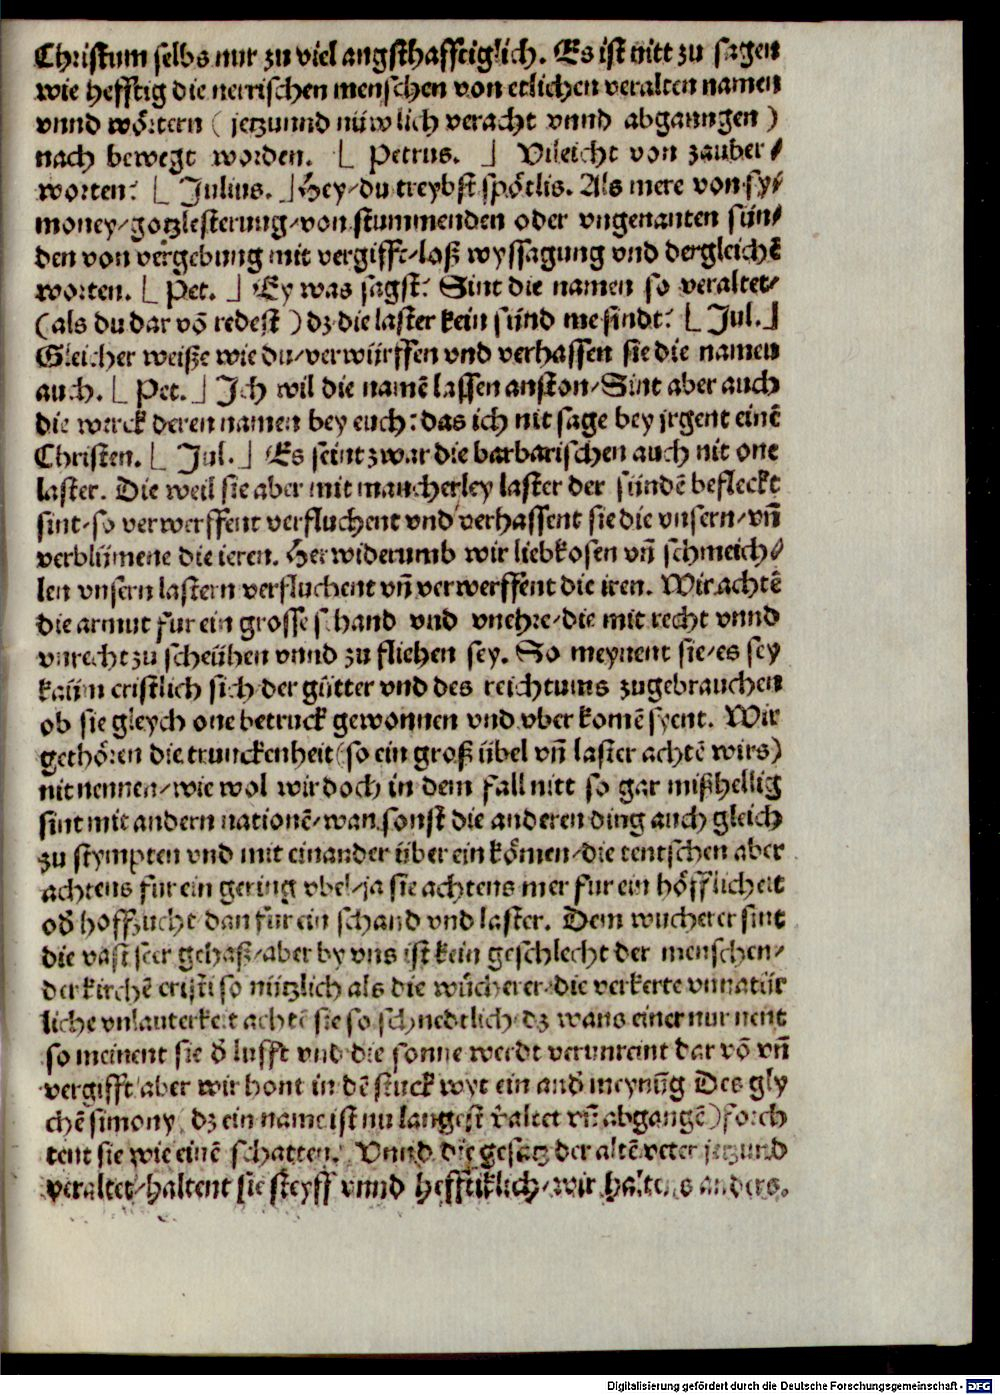 Christum selbs nur zu viel angsthafftiglich. Es ist nitt zu sagen
wie hefftig die nerrischen menschen von etlichen veralten namen
vnnd wörtern ( jetzunnd nüwlich veracht vnnd abganngen )
nach bewegt worden. [ Petrus. ] Vileicht von zauber⸗
worten? [ Julius. ] Hey/du treybst spötlis. Als mere von sy⸗
money/gotzlesterung/von stummenden oder vngenanten sün⸗
den von vergebung mit vergifft/loß wyssagung vnd dergleichē
worten. [ Pet. ] Ey was sagst? Sint die namen so veraltet/
(als du dar vō redest ) dz die laster kein sünd me sindt? [ Jul. ]
Gleicher weiße wie du/verwürffen vnd verhassen sie die namen
auch. [ Pet. ] Ich wil die namē lassen anston/Sint aber auch
die werck deren namen bey euch: das ich nit sage bey jrgent einē
Christen. [ Jul. ] Es seint zwar die barbarischen auch nit one
laster. Die weil sie aber mit mancherley laster der sündē befleckt
sint/so verwerffent verfluchent vnd verhassent sie die vnsern/vñ
verblümene die ieren. Her widerumb wir liebkosen vñ schmeich⸗
len vnsern lastern verfluchent vñ verwerffent die iren. Wir achtē
die armut fur ein grosse schand vnd vnehre/die mit recht vnnd
vnrecht zu scheühen vnnd zu fliehen sey. So meynent sie/es sey
kaüm cristlich sich der gütter vnd des reichtums zugebrauchen
ob sie gleych one betruck gewonnen vnd vber komē syent. Wir
gethören die trunckenheit (so ein groß übel vñ laster achtē wirs)
nit nennen/wie wol wir doch in dem fall nitt so gar mißhellig
sint mit andern nationē/wan sonst die anderen ding auch gleich
zu stympten vnd mit einander über ein kömen/die teutschen aber
achtens für ein gering vbel/ja sie achtens mer fur ein höfflicheit
od̄ hoffzucht dan für ein schand vnd laster. Dem wucherer sint
die vast seer gehaß/aber by vns ist kein geschlecht der menschen/
der kirchē cristi so nützlich als die wücherer/die verkerte vnnatür
liche vnlauterkeit achtē sie so schnedtlich dz wans einer nur nent
so meinent sie d̄ lufft vnd die sonne werdt verunreint dar vō vñ
vergifft aber wir hont in dē stuck wyt ein and̄ meynūg Des gly
chē simony ( dz ein name ist nu langest v̄altet vñ abgangē ) forch
tent sie wie einē schatten. Vnnd die gesatz der altē veter jetzund
veraltet/haltent sie steyff vnnd hefftiklich/wir haltens anders.
Digitalisierung gefördert durch die Deutsche Forschungsgemeinschaft - DFG